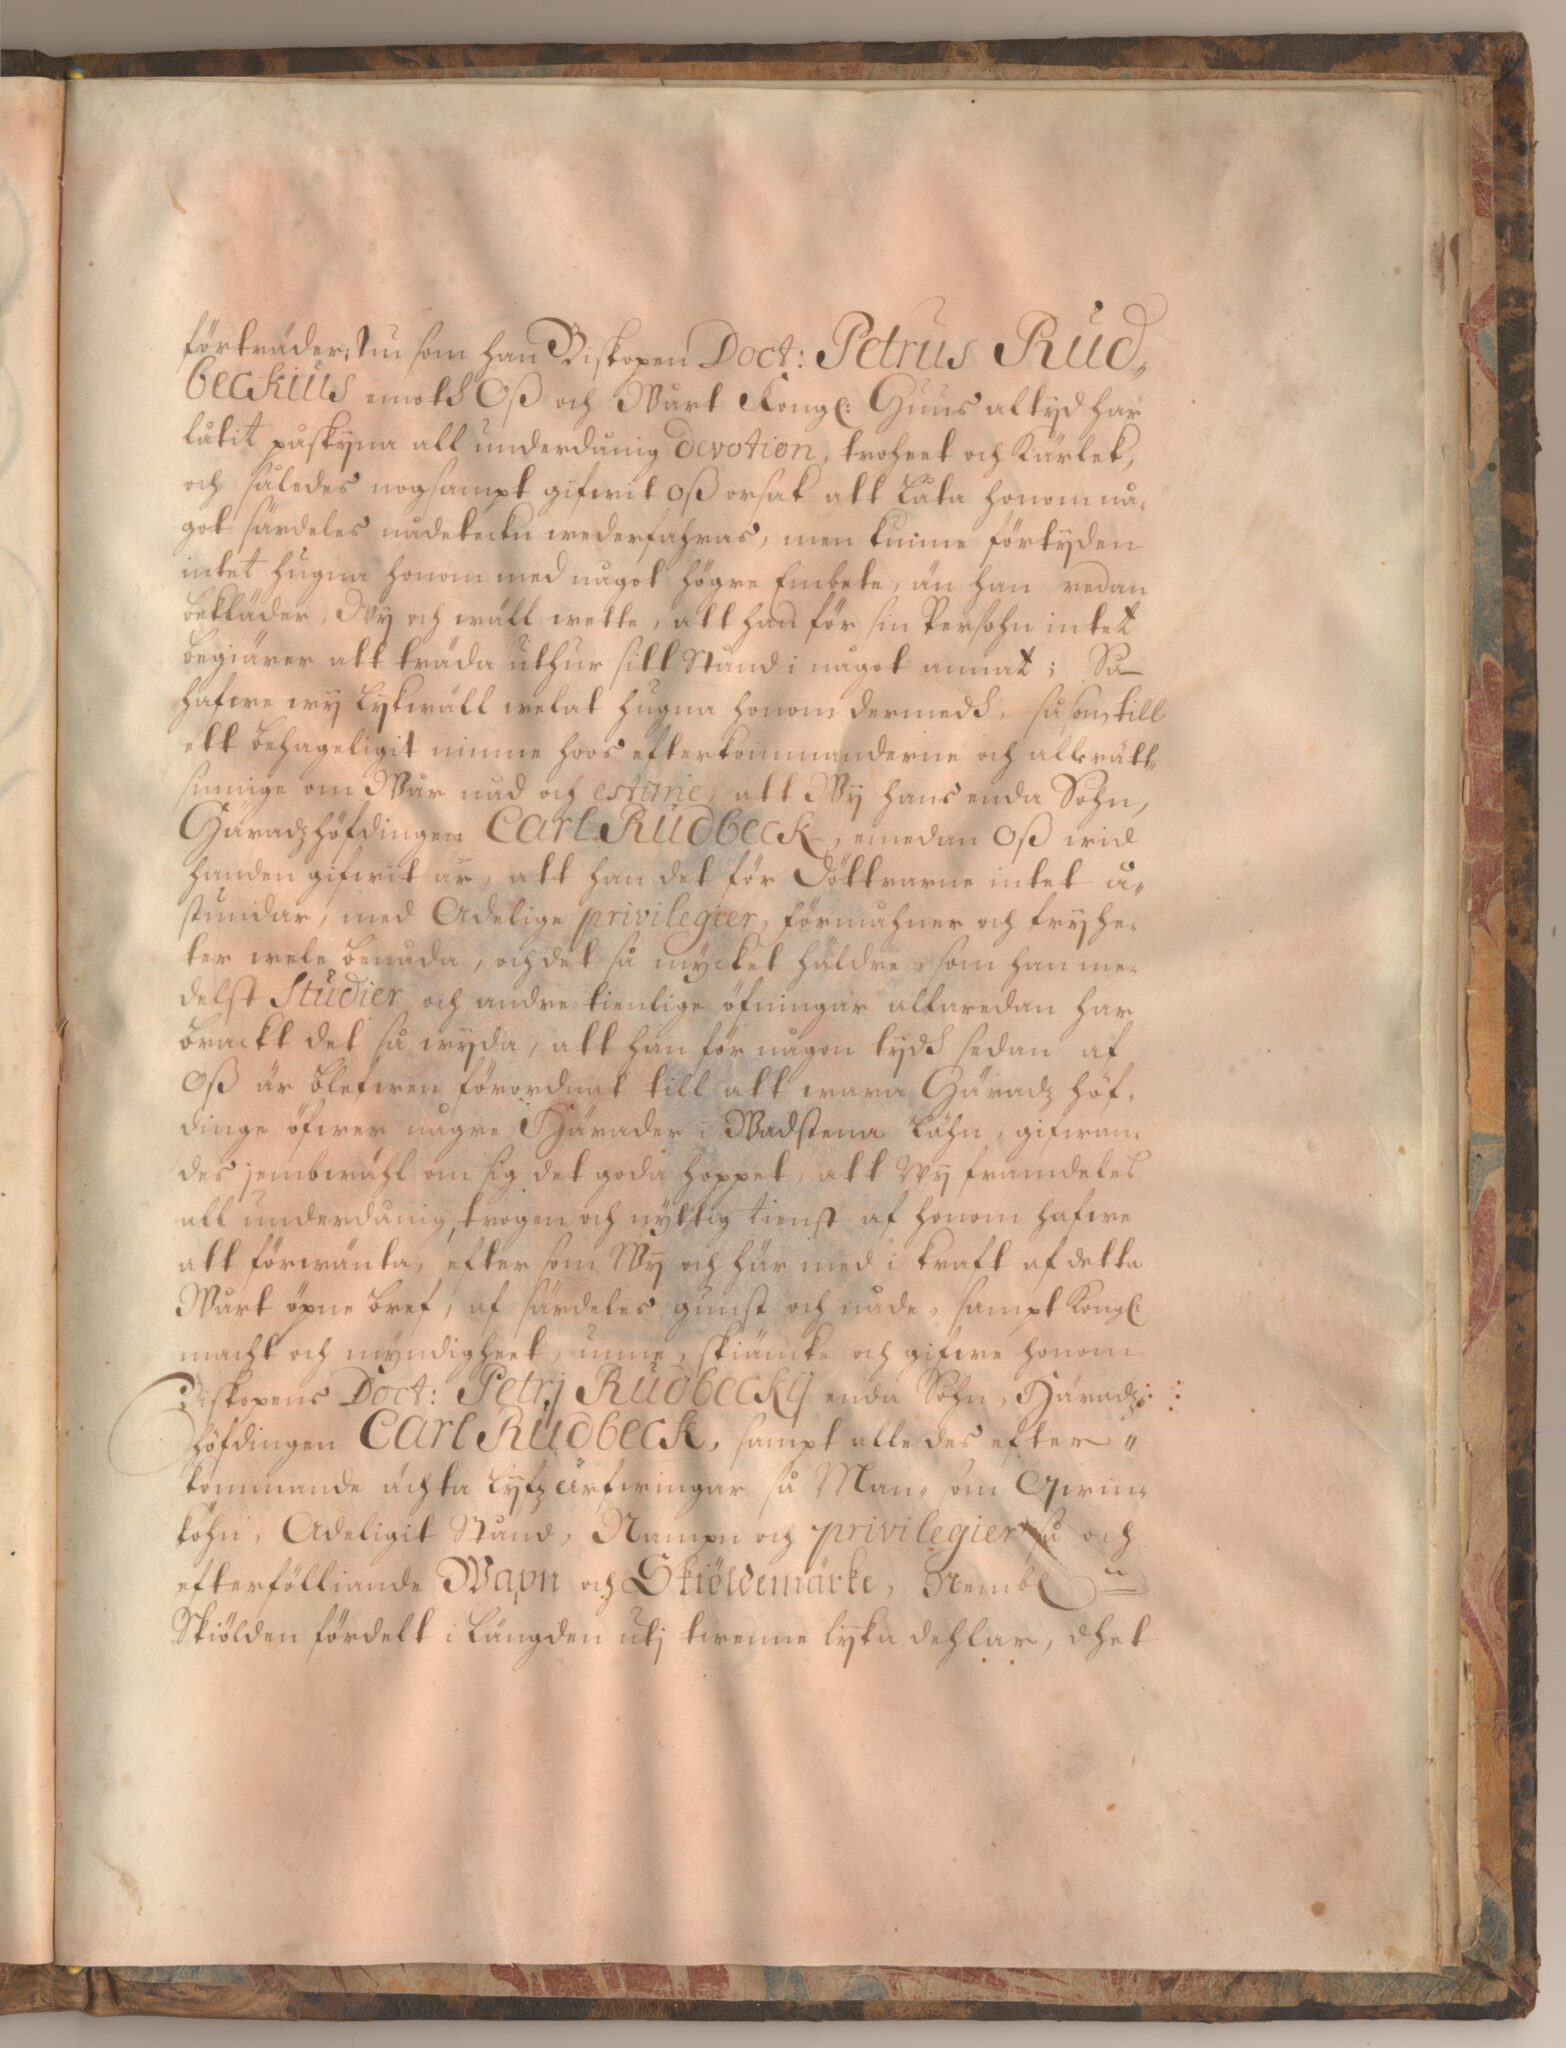 förträder; Nu som han Biskopen Doct: Petrus Rud„
beckius emoth Oß och Wårt Kongl: Huus altyd har
låtit påskyna all underdånig devotion, troheet och Kärlek,
och således nogsampt gifwit oß orsak att låta honom nå„
got särdeles nådeteckn wederfahras, men kunne förtyden
intet hugna honom med något högre Embete, än han redan
bekläder, Wy och wäll wette, att han för sin Persohn intet
begiärer att träda uthur sitt Stånd i något annat; Så
hafwe wy lykwäll welat hugna honom dermedh, såsom till
ett behageligit minne hoos efterkommanderne och alle rätt„
sinnige om Wår nåd och estime, att Wy hans enda Sohn,
Häradzhöfdingen Carl Rudbeck, emedan Oß wid
handen gifwit är, att han det för Döttrarne intet å„
stundar, med Adelige privilegier, förmåhner och fryhe„
ter wele benåda, och det så mycket häldre, som han me„
delst Studier och andre tienlige öfningar allaredan har
brackt det så wyda, att han för någon tydh sedan af
Oß är blefwen förordnat till att wara Häradz höf„
dinge öfwer någre Härader i Wadstena Lähn, gifwan„
des jembwähl om sig det goda hoppet, att Wy framdeles
all underdånig, trogen och nyttig tienst af honom hafwe
att förwänta, efter som Wy och här med i kraft af detta
Wårt öpne bref, af särdeles gunst och nåde, sampt Kongl:
macht och myndigheet, unne, skiäncke och gifwe honom
Biskopens Doct: Petrj Rudbeckij enda Sohn, Häradz:
höfdingen Carl Rudbeck, sampt alle des efter„
kommande ächta lyfz ärfwingar så Man„ som Qwin„
köhn, Adeligit Stånd, Nampn och privilegier så och
efterfölliande Wapn och Skiöldemärke, Nembl:
Skiölden fördelt i Längden utj twenne lyka dehlar, dhet